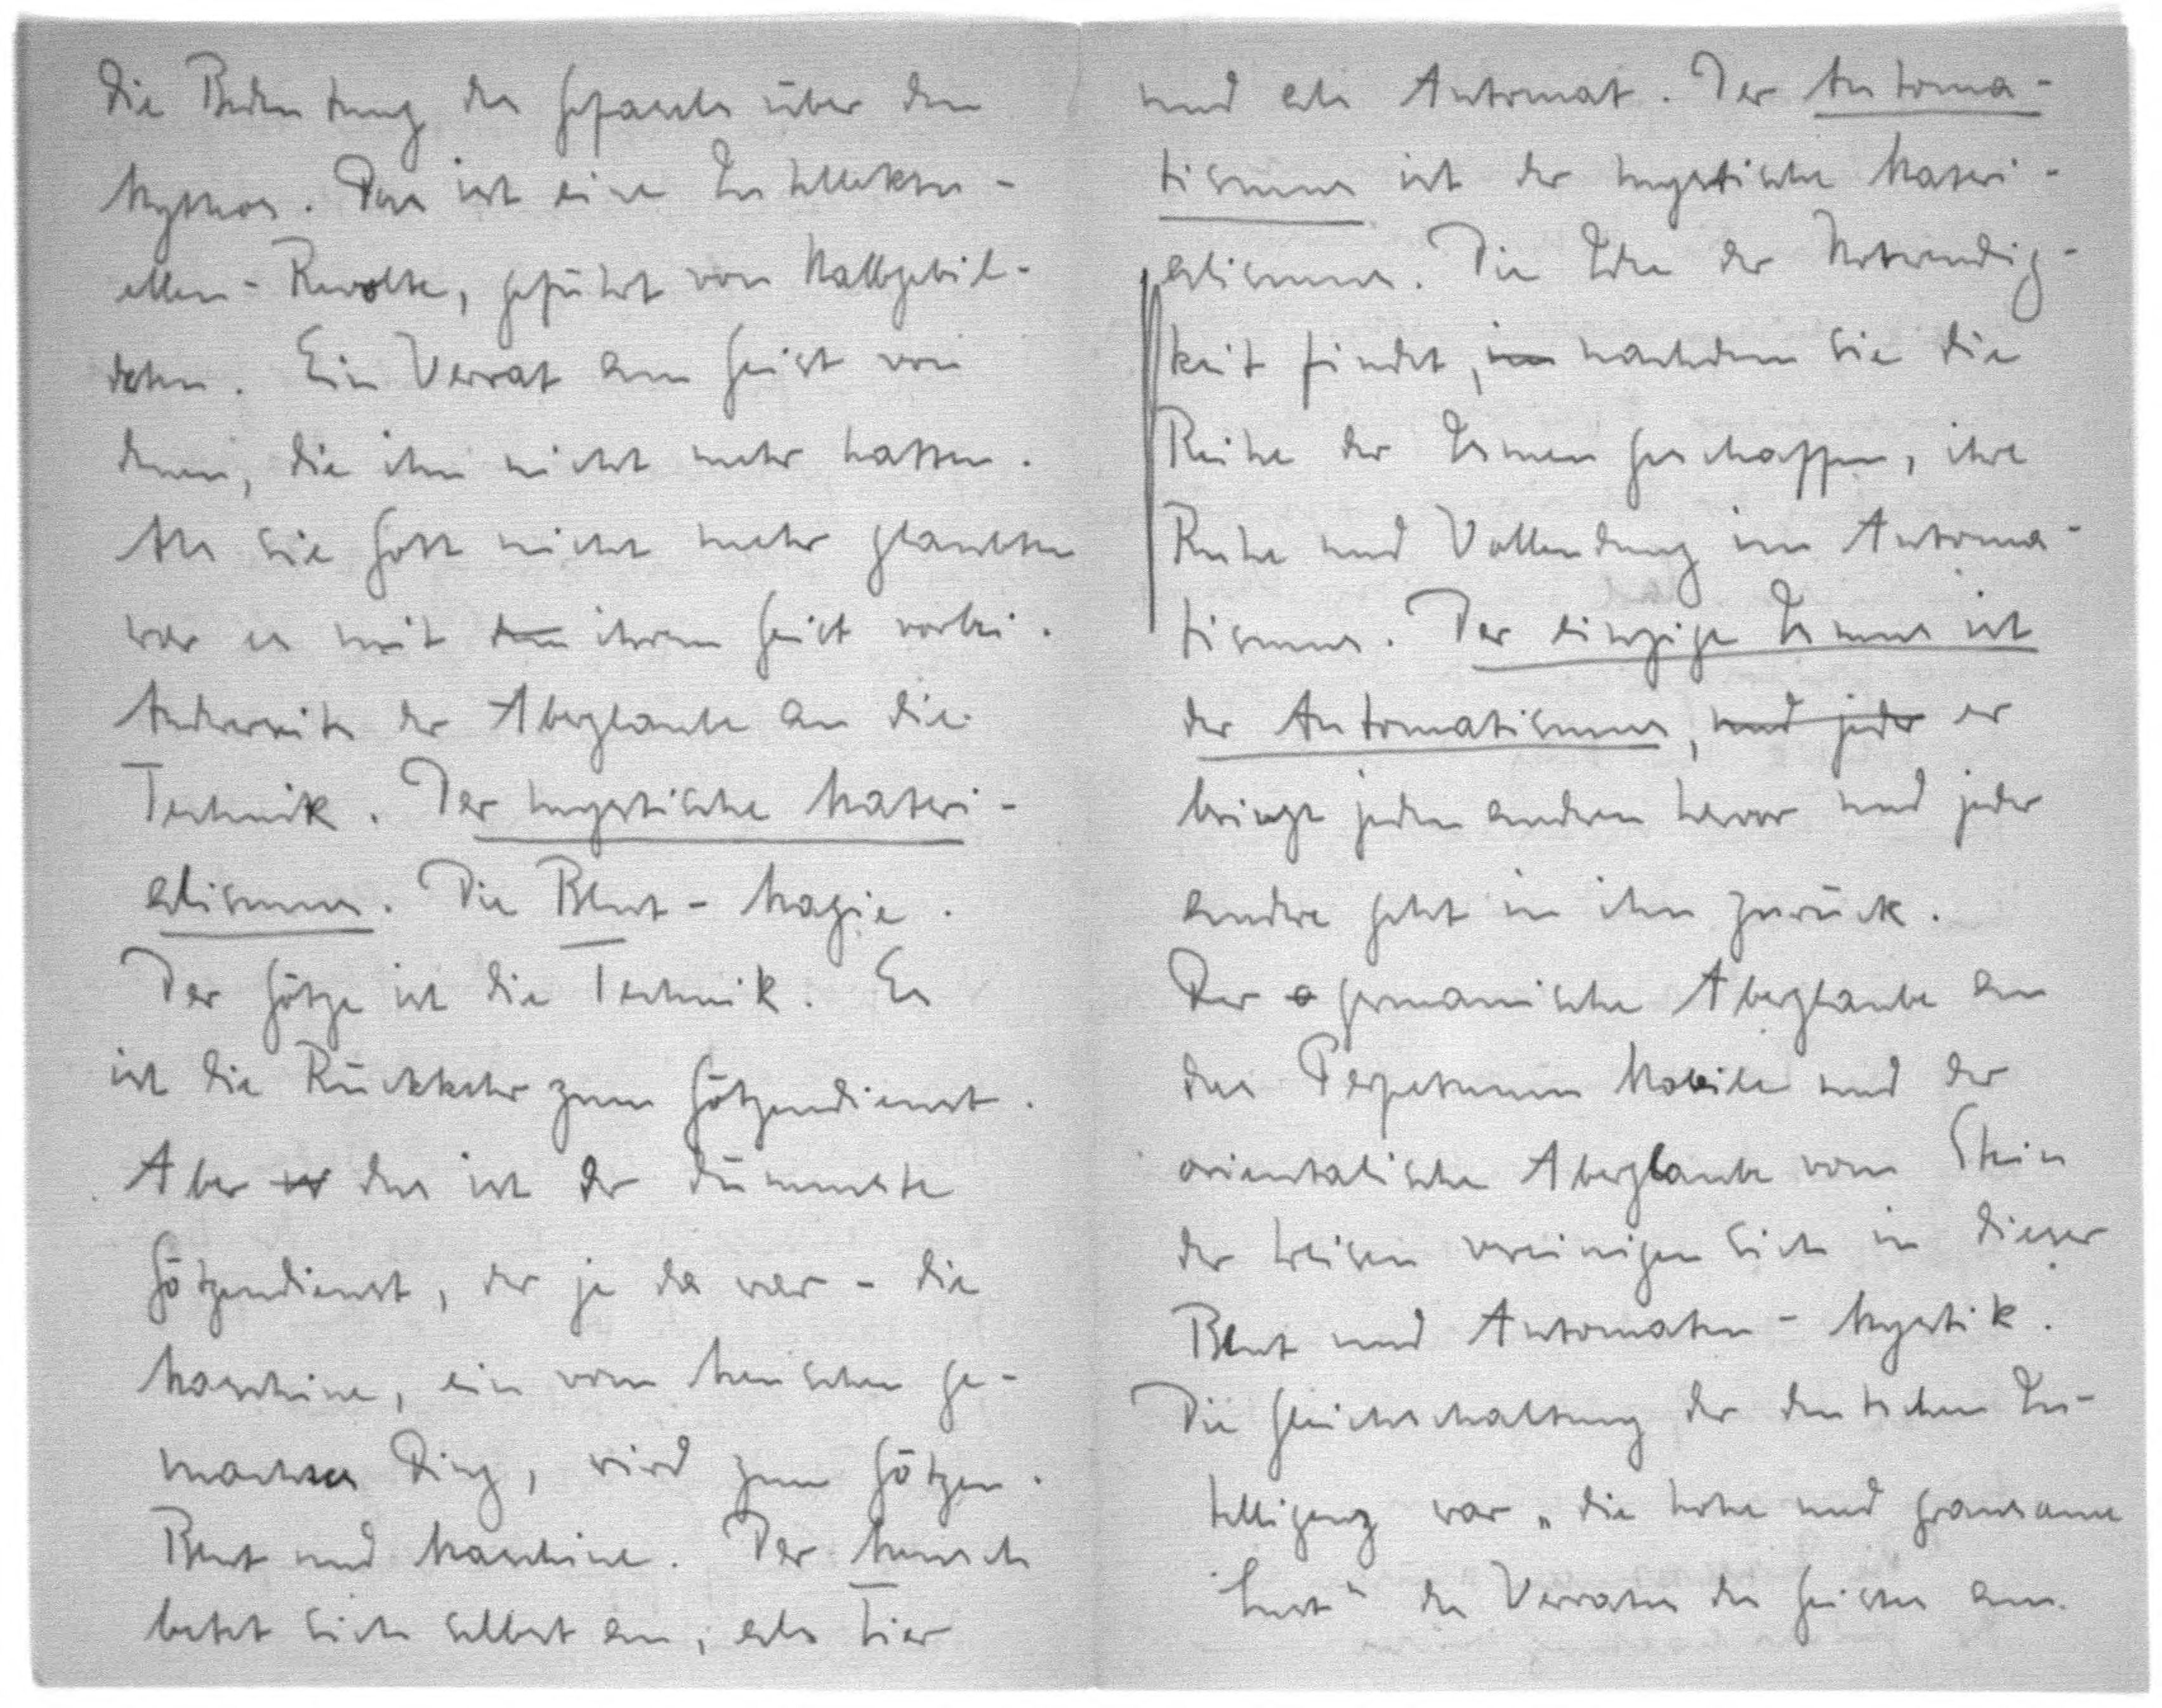 die Bedeutung des Gefasels über den
Mythos. Das ist eine Intellektu-
ellen-Revolte, geführt von Halbgebil-
deten. Ein Verrat am Geist von
denen, die ihn nicht mehr hatten.
Als sie Gott nicht mehr glaubten
war es mit ihrem Geist vorbei.
Anderseits der Aberglaube an die
Technik. Der mystische Materi-
alismus. Die Blut-Magie.
Der Götze ist die Technik. Es
ist die Rückkehr zum Götzendienst.
Aber das ist der dümmste
Götzendienst, der je da war - die
Maschine, ein vom Menschen ge-
machtes Ding, wird zum Götzen.
Blut und Maschine. Der Mensch
betet sich selbst an, als Tier
und als Automat. Der Automa-
tismus ist der mystische Materi-
alismus. Die Idee der Notwendig-
keit findet, nachdem sie die
Reihe der Ismen geschaffen, ihre
Ruhe und Vollendung im Automa-
tismus. Der einzige Ismus ist
der Automatismus, und jeder er
bringt jeden anderen hervor und jeder
andre geht in ihn zurück.
Der germanische Aberglaube an
das Perpetuum Mobile und der
orientalische Aberglaube vom Stein
der Weisen vereinigen sich in dieser
Blut und Automaten-Mystik.
Die Gleichschaltung der deutschen In-
telligenz war „die hohe und grausame
Lust“ des Verrates des Geistes am